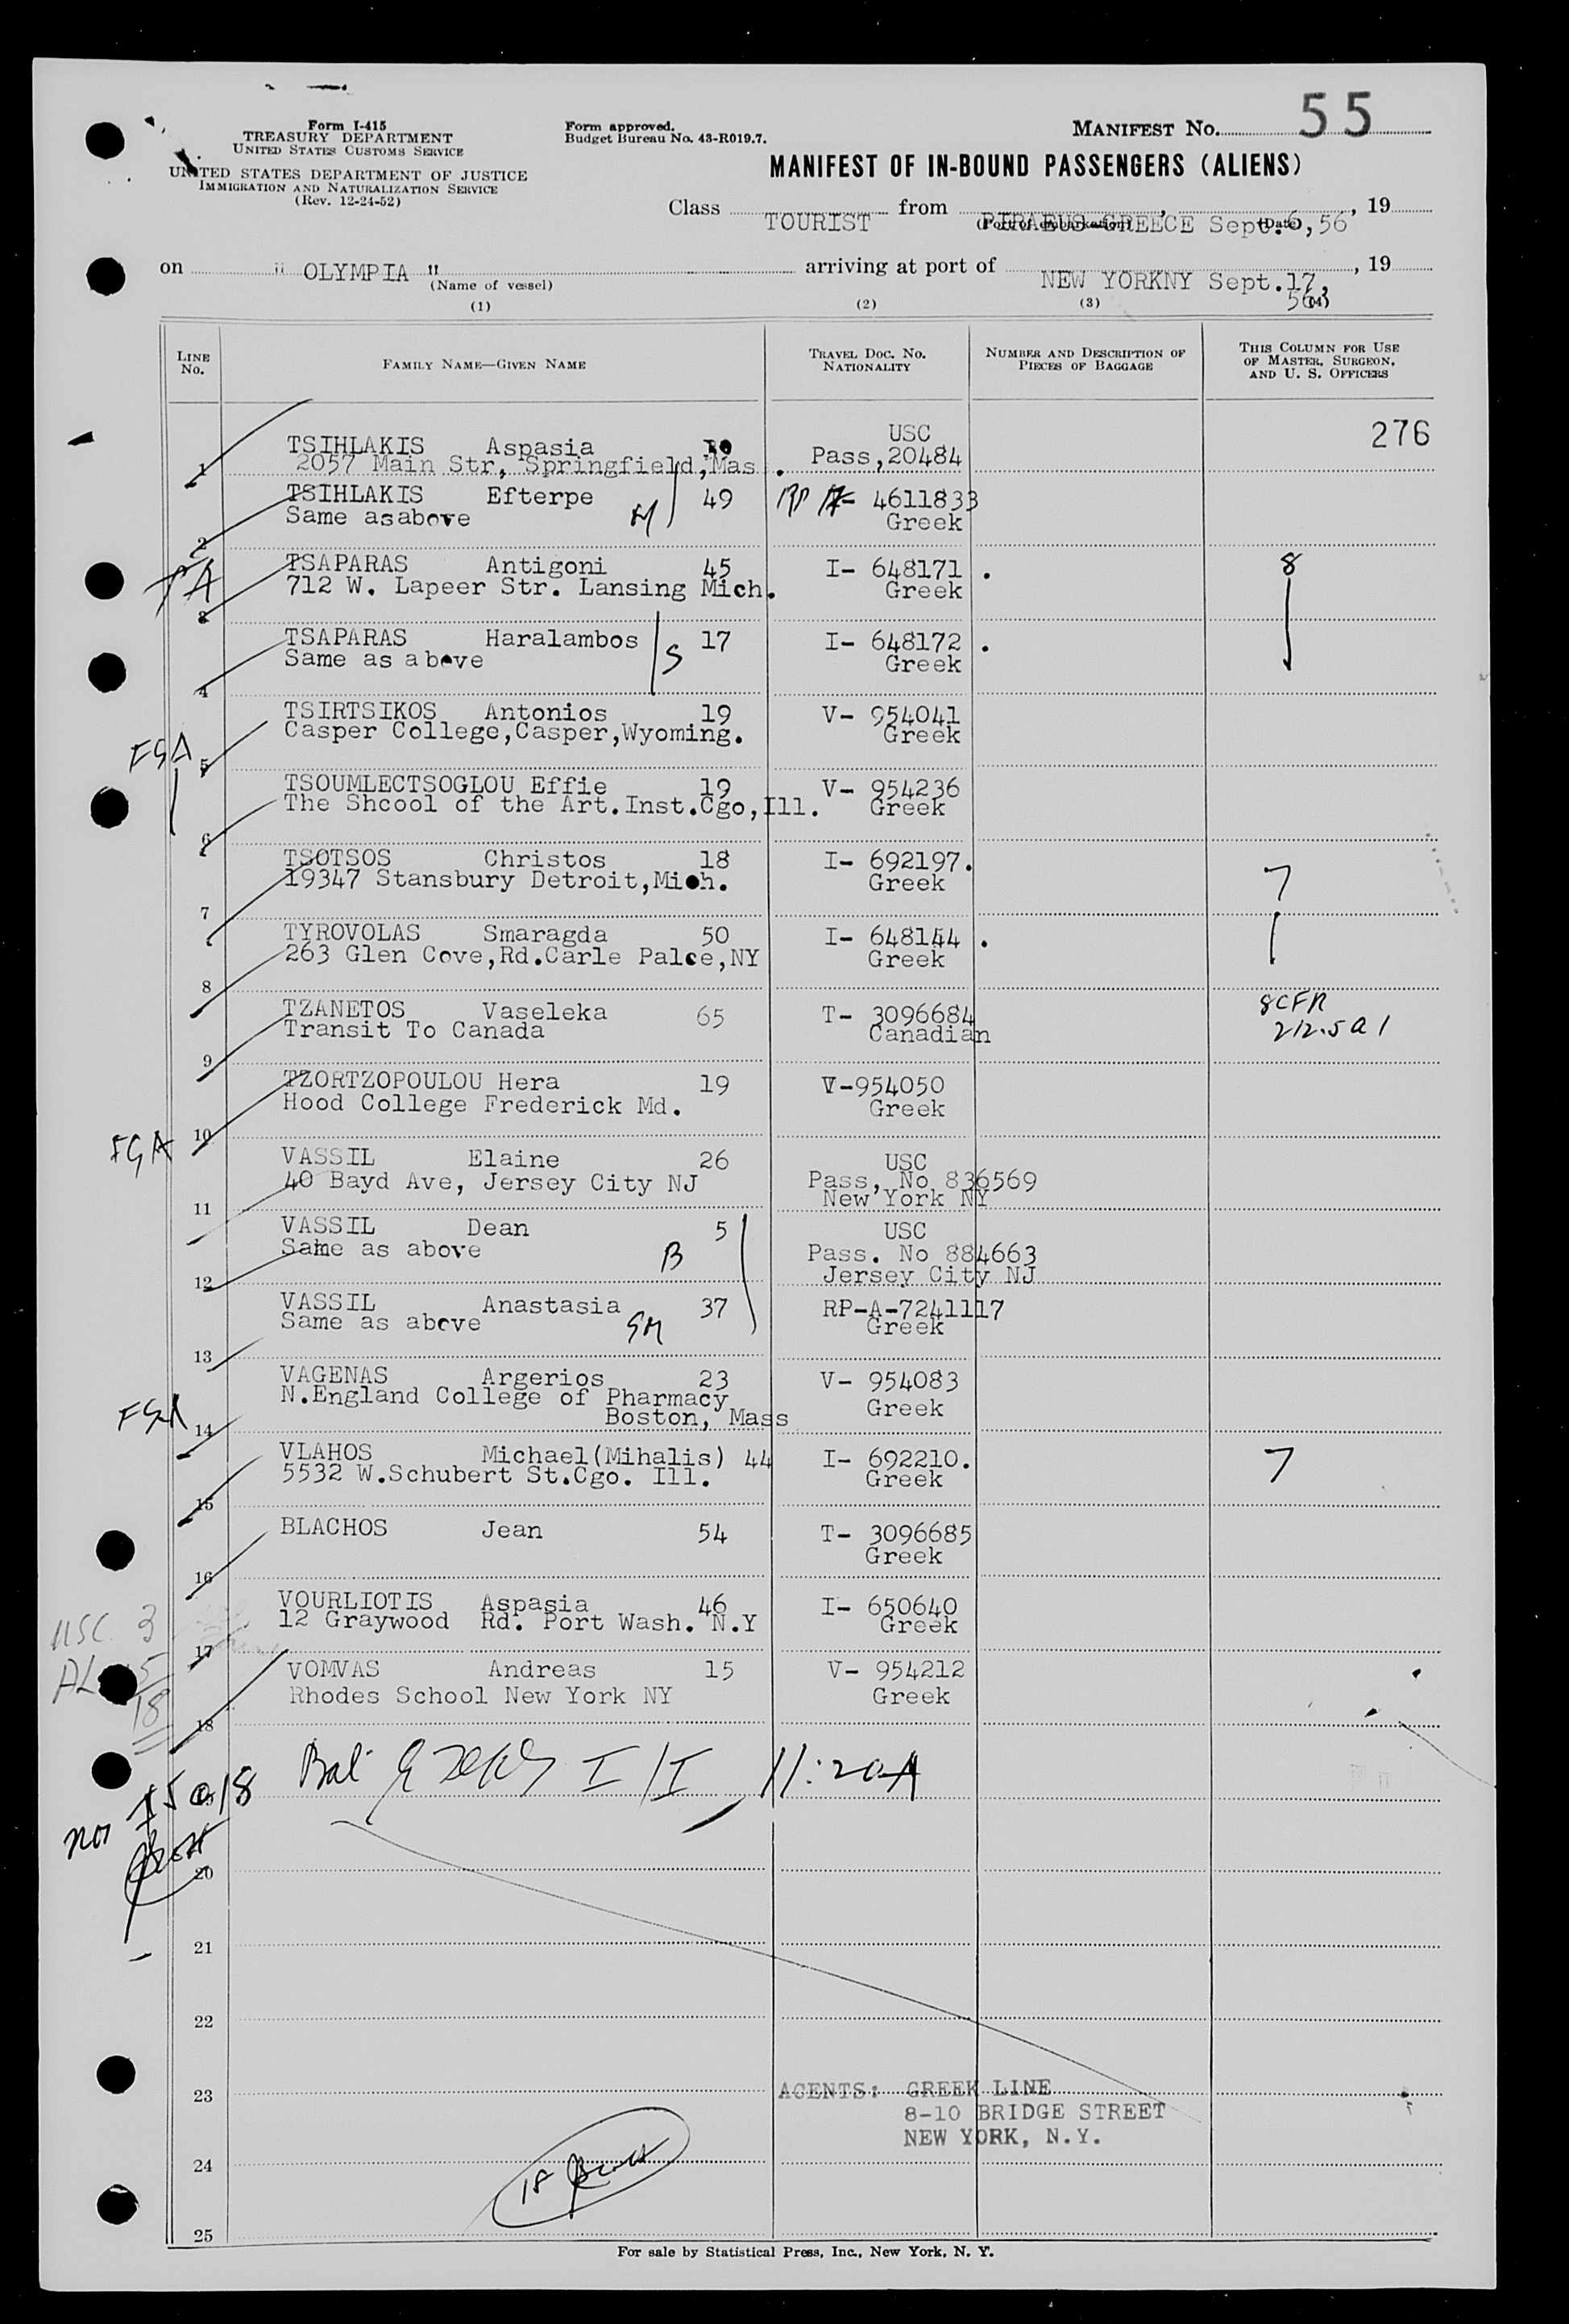 Form I-415
TREASURY DEPARTMENT
UNITED STATES CUSTOMS SERVICE
UNITED STATES DEPARTMENT OF JUSTICE
IMMIGRATION AND NATURALIZATION SERVICE
(Rev. 12-24-52)
Form approved.
Budget Bureau No. 43-R019.7.
MANIFEST No. 55
MANIFEST OF IN-BOUND PASSENGERS (ALIENS)
Class TOURIST from PIRAEUS GREECE Sept. 6, 56, 19
(Port of embarkation) (Date)
on " OLYMPIA " arriving at port of NEW YORKNY Sept.17, 56, 19
(Name of vessel)
(1) (2) (3) (4)
LINE No. FAMILY NAME—GIVEN NAME TRAVEL DOC. No. NATIONALITY NUMBER AND DESCRIPTION OF PIECES OF BAGGAGE THIS COLUMN FOR USE OF MASTER, SURGEON, AND U. S. OFFICERS
276
1 TSIHLAKIS Aspasia USC
2057 Main Str, Springfield, Mas. Pass,20484
2 TSIHLAKIS Efterpe M 49 RP A- 4611833
Same asabove Greek
TA
3 TSAPARAS Antigoni 45 I- 648171 . 8
712 W. Lapeer Str. Lansing Mich. Greek
4 TSAPARAS Haralambos S 17 I- 648172 .
Same as above Greek
FSA
5 TSIRTSIKOS Antonios 19 V- 954041
Casper College,Casper,Wyoming. Greek
6 TSOUMLECTSOGLOU Effie 19 V- 954236
The Shcool of the Art.Inst.Cgo,Ill. Greek
7 TSOTSOS Christos 18 I- 692197. 7
19347 Stansbury Detroit,Mich. Greek
8 TYROVOLAS Smaragda 50 I- 648144 .
263 Glen Cove,Rd.Carle Palce,NY Greek
9 TZANETOS Vaseleka 65 T- 3096684 8CFR
Transit To Canada Canadian 212.5 a 1
10 TZORTZOPOULOU Hera 19 V-954050
Hood College Frederick Md. Greek
FSA
11 VASSIL Elaine 26 USC
40 Bayd Ave, Jersey City NJ Pass, No 836569
New York NY
12 VASSIL Dean 5 USC
Same as above B Pass. No 884663
Jersey City NJ
13 VASSIL Anastasia 37 RP-A-7241117
Same as above SM Greek
14 VAGENAS Argerios 23 V- 954083
N.England College of Pharmacy Greek
Boston, Mass
FSA
15 VLAHOS Michael(Mihalis) 44 I- 692210. 7
5532 W.Schubert St.Cgo. Ill. Greek
16 BLACHOS Jean 54 T- 3096685
Greek
17 VOURLIOTIS Aspasia 46 I- 650640
12 Graywood Rd. Port Wash. N.Y Greek
USC 3
18 VOMVAS Andreas 15 V- 954212
Rhodes School New York NY Greek
18
11:20A
20
21
22
23 AGENTS: GREEK LINE
8-10 BRIDGE STREET
NEW YORK, N.Y.
24
18
25
For sale by Statistical Press, Inc., New York, N. Y.